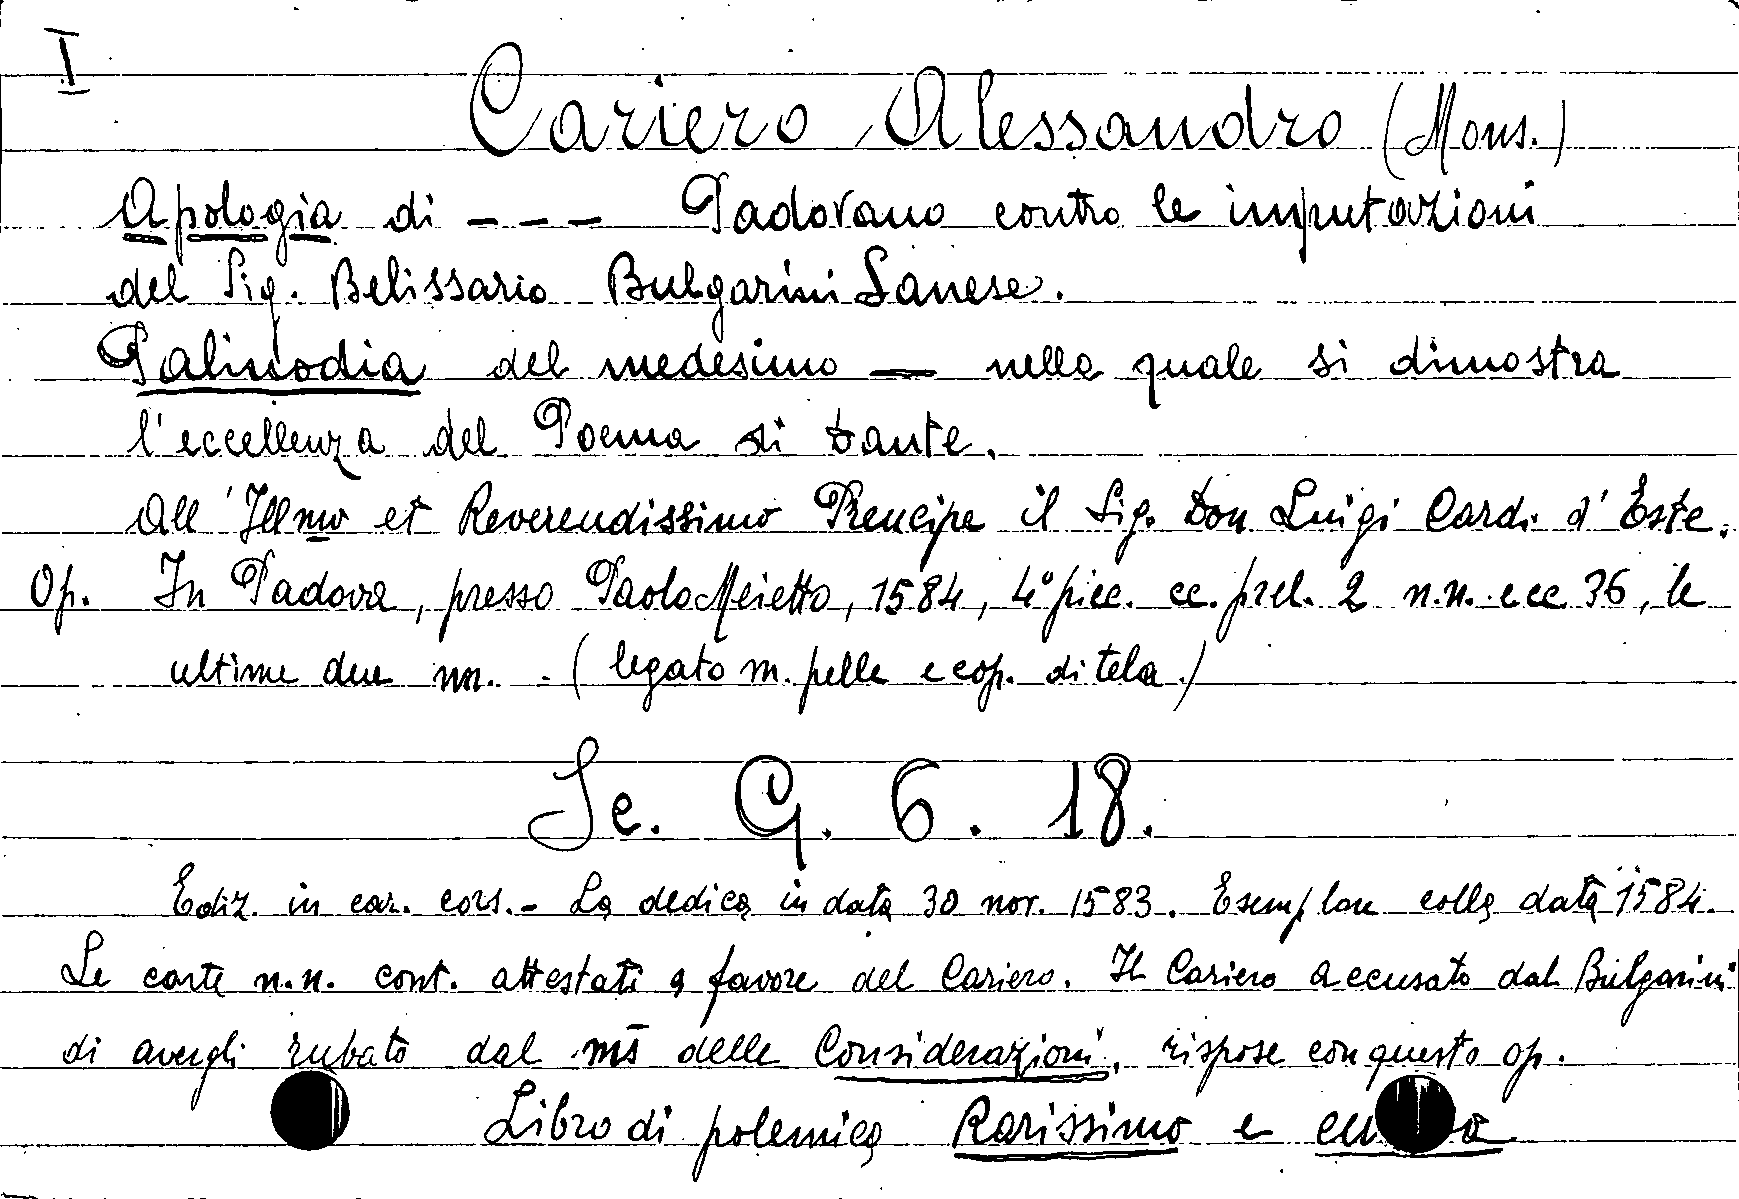 I
Cariero Alessandro (Mons.)
Apologia di - - - Padovano contro le imputazioni
del Sig. Belissario Bulgarini Sanese.
Palinodia del medesimo — nella quale si dimostra
l'eccellenza del Poema di Dante.
All'Illmo et Reverendissimo Prencipe il Sig. Don Luigi Card. d'Este.
Op. In Padova, presso Paolo Meietto, 1584, 4° picc. cc. prel. 2 n.n. e cc. 36, le
ultime due nn. - (legato m. pelle e cop. di tela.)
Se. G. 6. 18.
Ediz. in car. cors. - La dedica in data 30 nov. 1583. Esemplare colla data 1584.
Le carte n.n. cont. attestati a favore del Cariero. Il Cariero accusato dal Bulgarini
di avergli rubato dal ms delle Considerazioni, rispose con questo op.
Libro di polemica Rarissimo e